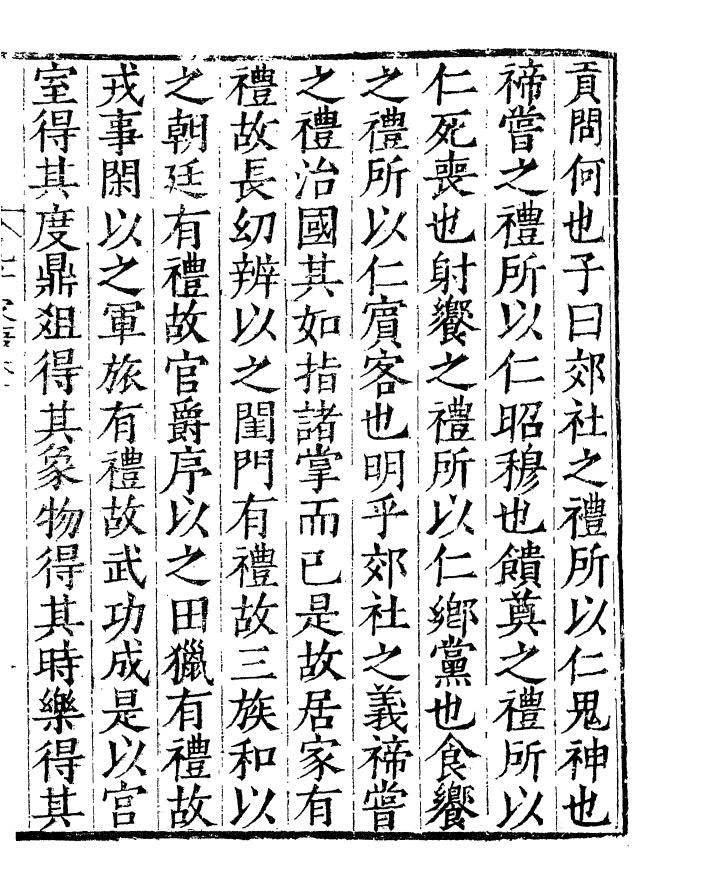 貢問何也子曰郊社之禮所以仁鬼神也
禘嘗之禮所以仁昭穆也饋奠之禮所以
仁死喪也射饗之禮所以仁鄉黨也食饗
之禮所以仁賓客也明乎郊社之義禘嘗
之禮治國其如指諸掌而已是故居家有
禮故長幼辨以之閨門有禮故三族和以
之朝廷有禮故官爵序以之田獵有禮故
戎事閑以之軍旅有禮故武功成是以宮
室得其度鼎俎得其象物得其時樂得其